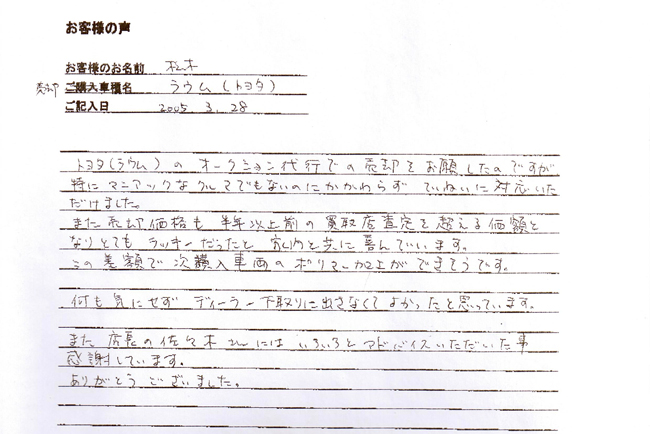 お客様の声
お客様のお名前 松木
売却 ご購入車種名 ラウム(トヨタ)
ご記入日 2005. 3. 28
トヨタ(ラウム)のオークション代行での売却をお願したのですが
特にマニアックなクルマでもないのにかかわらず ていねいに対応いた
だけました。
また売却価格も 半年以上前の買取店査定を超える価額と
なりとてもラッキーだったと 家内と共に喜んでいます。
この差額で次購入車両のポリマー加工ができそうです。
何も気にせず ディーラー下取りに出さなくてよかったと思っています。
また 店長の佐々木さんには いろいろとアドバイスいただいた事
感謝しています。
ありがとうございました。